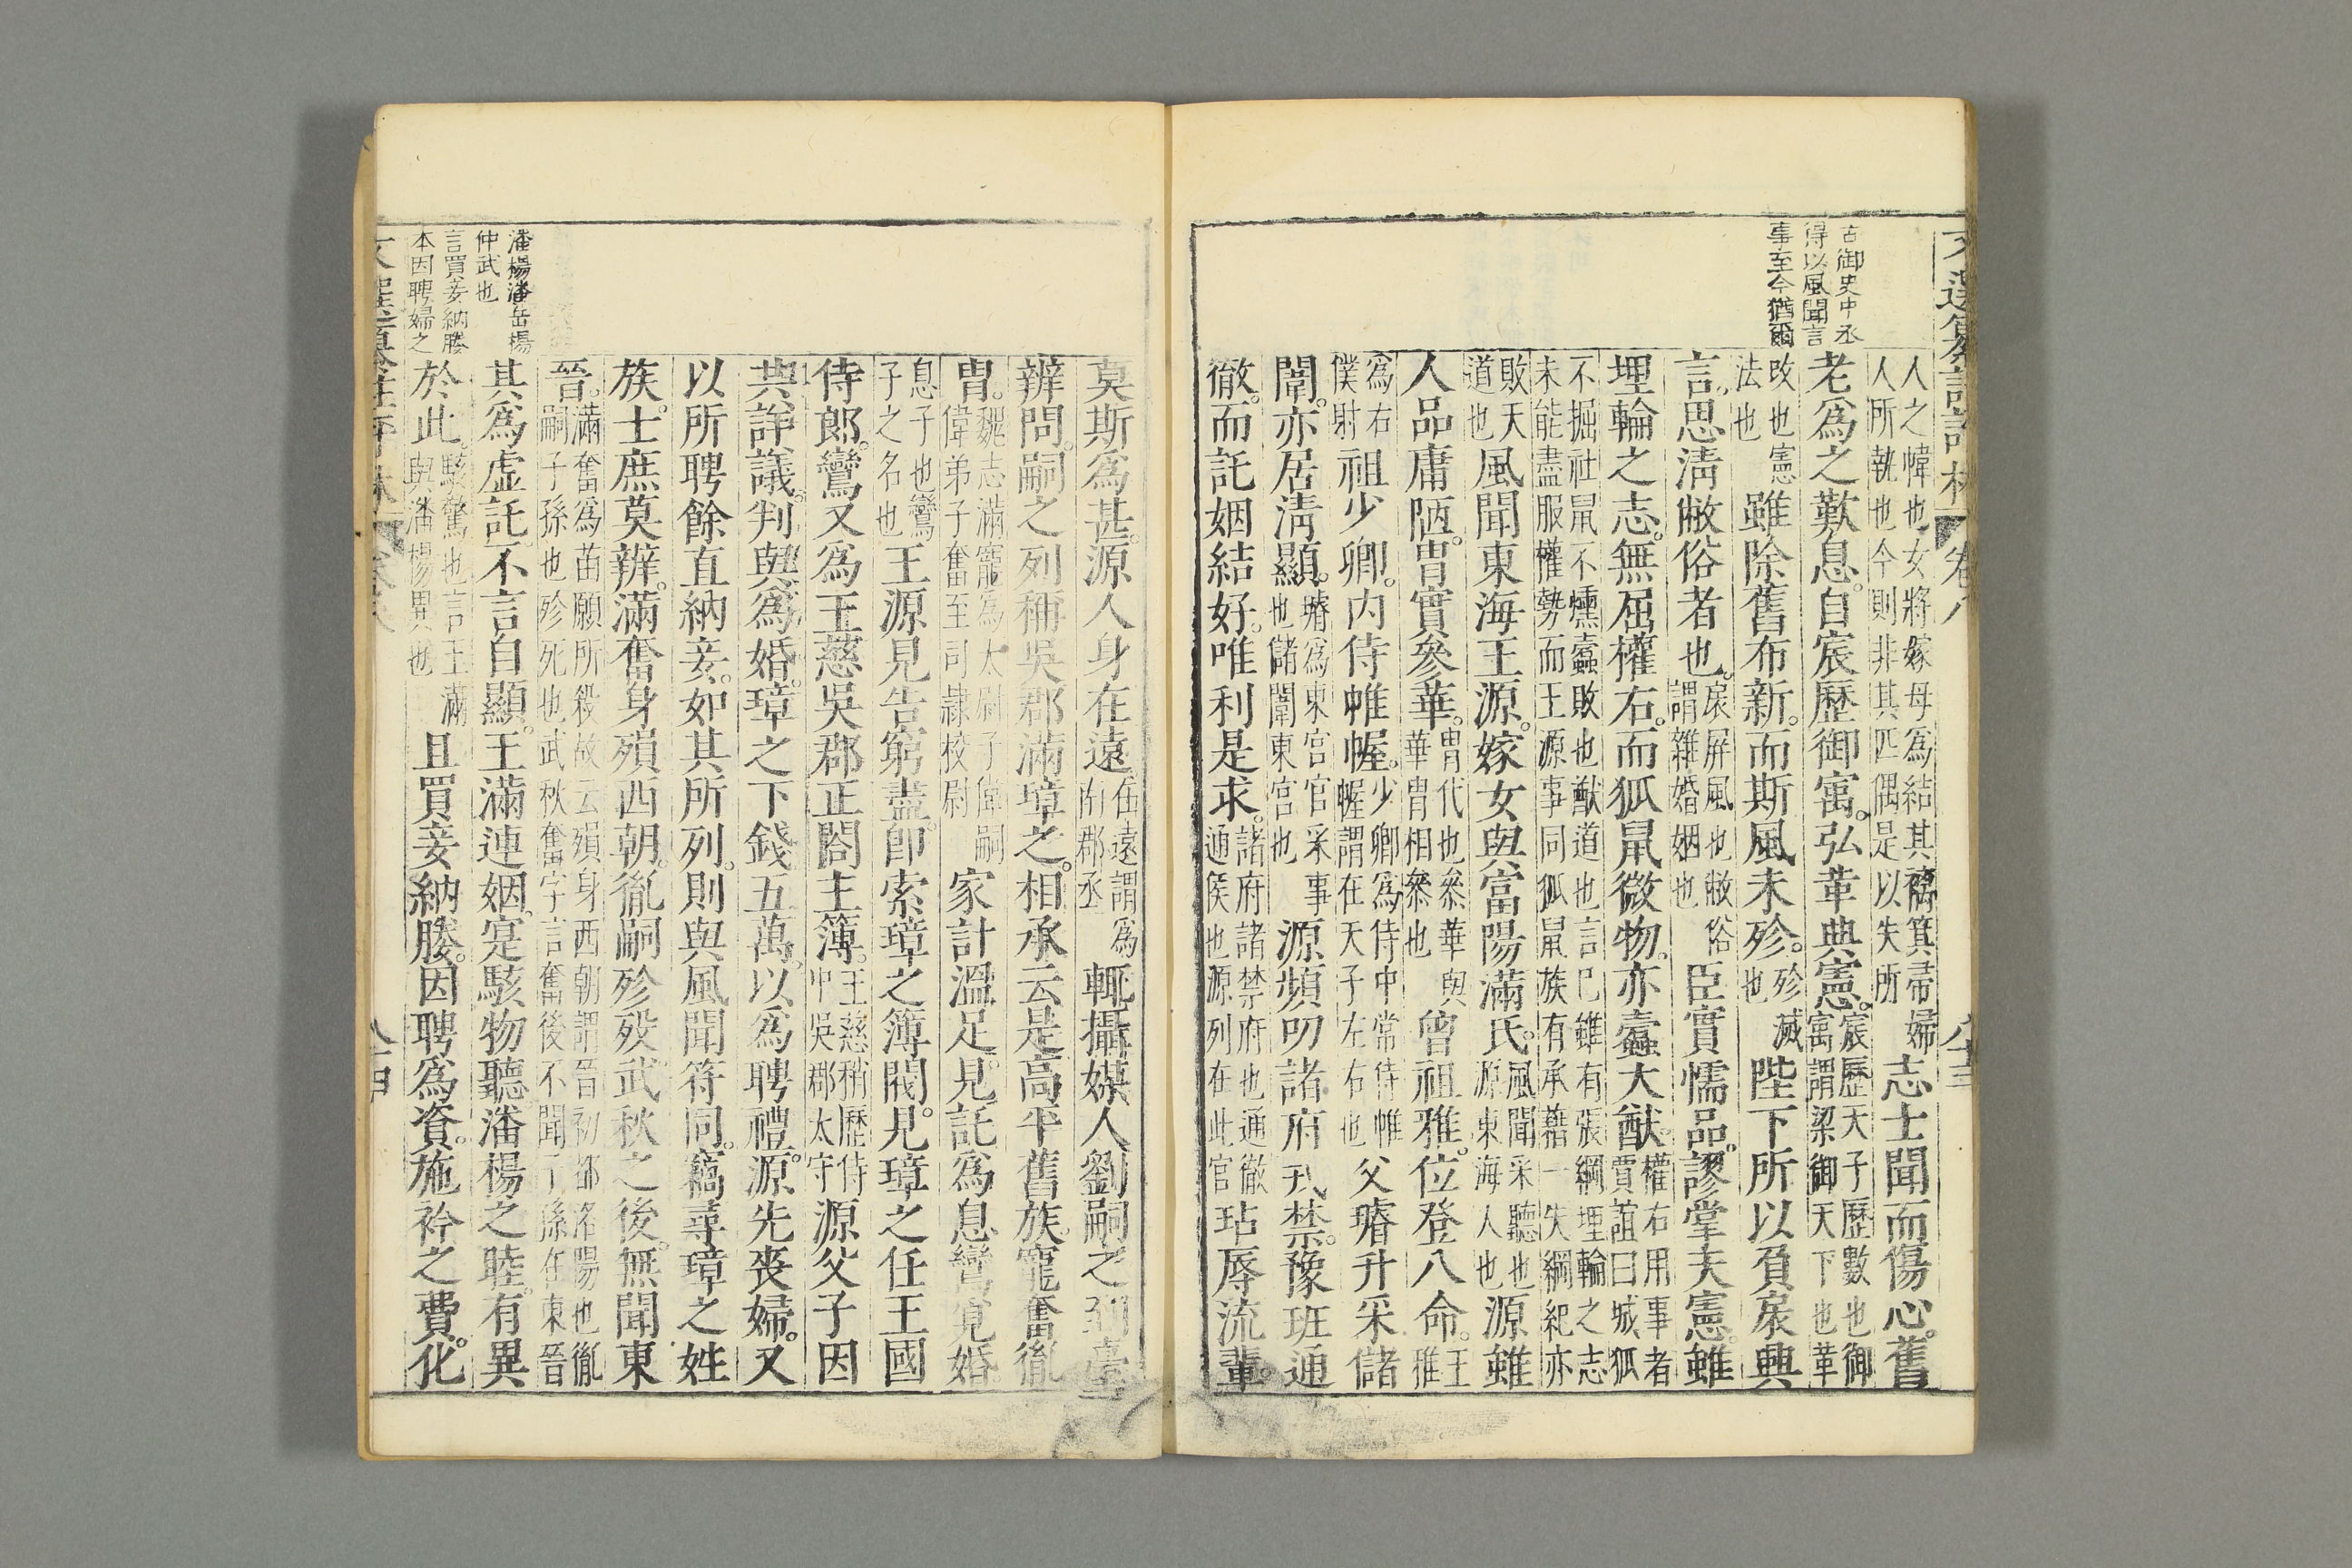 古御史中丞
得以風聞言
事至今猶爾
人之幃也女將嫁母爲結其褵箕帚婦
人所執也今則非其匹偶是以失所
志士聞而傷心。舊
老爲之歎息。自宸歷御寓。弘革典憲。
宸歷天子歷數也御
寓謂梁御天下也革
改也憲
法也
雖除舊布新。而斯風未殄。
殄滅
也
陛下所以負扆興
言。思淸敝俗者也。
扆屏風也敝俗
謂雜婚姻也
臣實懦品。謬掌天憲。雖
埋輪之志。無屈權右。而狐鼠微物。亦蠹大猷。
權右用事者
賈誼曰城狐
不掘社鼠不燻蠹敗也猷道也言已雖有張綱埋輪之志
未能盡服權勢而王源事同狐鼠族有承藉一失綱紀亦
敗天
道也
風聞東海王源。嫁女與當陽滿氏。
風聞采聽也
源東海人也
源雖
人品庸陋。冑實參華。
冑代也叅華與
華冑相叅也
曾祖雅。位登八命。
王
雅
爲右
僕射
祖少卿。內侍帷幄。
少卿爲侍中常侍帷
幄謂在天子左右也
父璿升采儲
闈。亦居淸顯。
璿爲東宮官采事
也儲闈東宮也
源頻叨諸府戎禁。豫班通
徹。而託姻結好。唯利是求。
諸府諸禁府也通徹
通侯也源列在此官
玷辱流輩。
莫斯爲甚。源人身在遠
在遠謂爲
南郡丞
輒攝媒人劉嗣之到臺
辨問。嗣之列稱吳郡滿璋之。相承云是高平舊族。寵奮胤
冑。
魏志滿寵爲太尉子偉嗣
偉弟子奮至司隷校尉
家計溫足。見託爲息鸞覓婚
息子也鸞
子之名也
王源見告窮盡。卽索璋之簿閥。見璋之任王國
侍郎。鸞又爲王慈吳郡正閤主簿。
王慈稍歷侍
中吳郡太守
源父子因
共詳議。判與爲婚。璋之下錢五萬。以爲聘禮。源先喪婦。又
以所聘餘直納妾。如其所列。則與風聞符同。竊尋璋之姓
族。士庶莫辨。滿奮身殞西朝。胤嗣殄殁。武秋之後。無聞東
晉。
滿奮爲苗願所殺故云殞身西朝謂晉初都洛陽也胤
嗣子孫也殄死也武秋奮字言奮後不聞子孫在東晉
其爲虛託。不言自顯。王滿連姻。寔駭物聽潘楊之睦。有異
於此。
駭驚也言王滿
與潘楊異也
且買妾納媵。因聘爲資。施衿之費。化
潘楊潘岳楊
仲武也
言買妾納媵
本因聘婦之